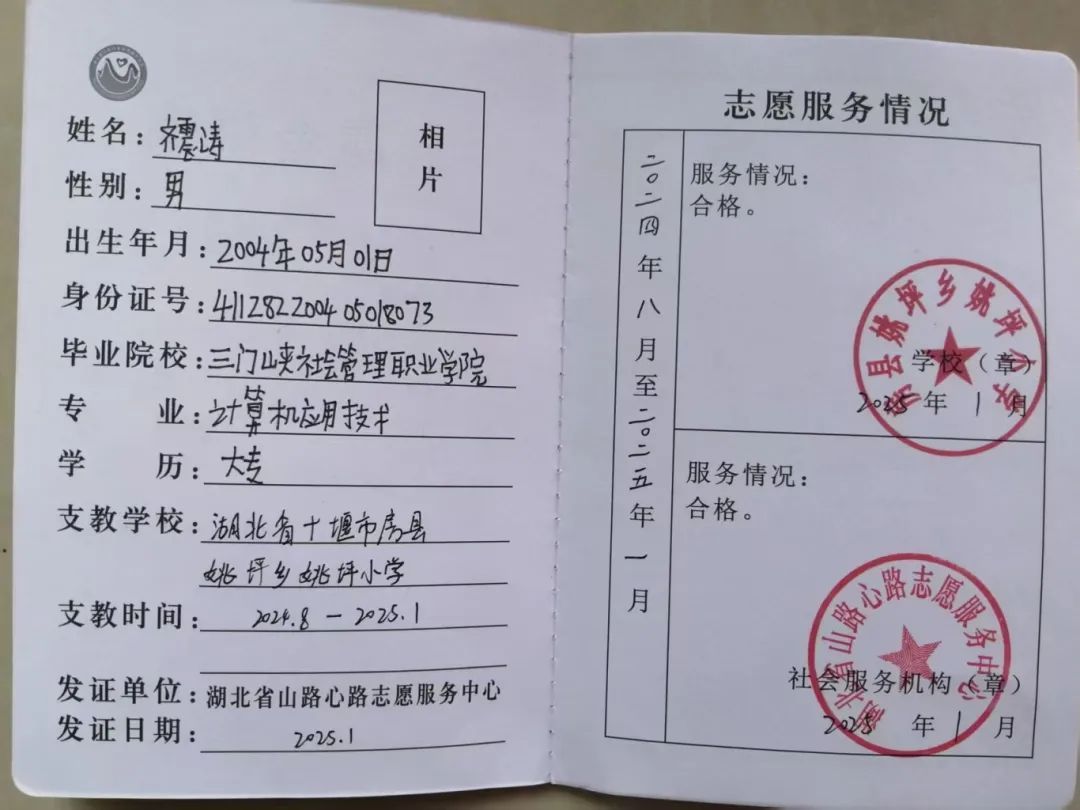 姓名：
性别：男
出生年月：2004年05月01日
身份证号：411282200405018073
毕业院校：三门峡社会管理职业学院
专业：计算机应用技术
学历：大专
支教学校：湖北省十堰市房县
姚坪乡姚坪小学
支教时间：2024.8—2025.1
发证单位：湖北省山路心路志愿服务中心
发证日期：2025.1
相片
志愿服务情况
二〇二四年八月至二〇二五年一月
服务情况：
合格。
房县姚坪乡姚坪小学
学校（章）
2025年1月
服务情况：
合格。
湖北省山路心路志愿服务中心
社会服务机构（章）
2025年1月